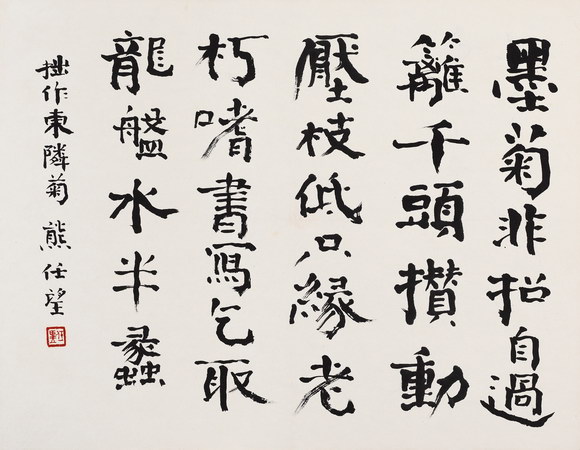 墨菊非招自過
籬千頭攢動
壓枝低只緣老
朽嗜書寫乞取
龍盤水半蠡
拙作東隣菊 熊任望